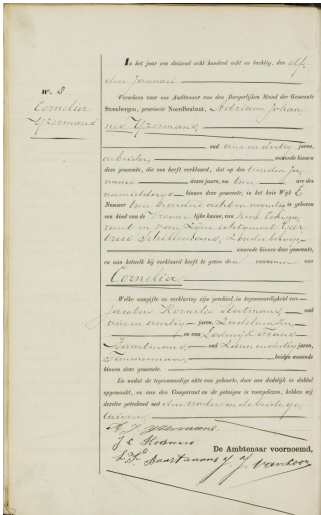 N°. 8
Cornelia
IJzermans
In het jaar een duizend acht honderd acht en tachtig, den elf
den Januari
Verscheen voor ons Ambtenaar van den Burgerlijken Stand der Gemeente
Steenbergen, provincie Noordbrabant, Adriaan Johan
nes IJzermans,
oud vier en dertig jaren,
arbeider, wonende binnen
deze gemeente, die ons heeft verklaard, dat op den tienden Ja
nuari dezes jaars, ten twee ure des
namiddags binnen deze gemeente, in het huis Wijk E
Nummer twee honderd acht en negentig is geboren
een kind van de vrouwelijke kunne, van
en van zijne echtgenoot Geer
trui Schellemans, zonder beroep
wonende binnen deze gemeente,
en aan hetwelk hij verklaard heeft te geven den voornaam van
Cornelia,
Welke aangifte en verklaring zijn geschied in tegenwoordigheid van
Jacobus Kornelis Hootmans, oud
vier en veertig jaren, Zadelmaker
en van Lodewijk Frans
Baartmans, oud zeven en dertig jaren,
Timmerman, beiden wonende
binnen deze gemeente.
En nadat de tegenwoordige akte van geboorte, door ons dadelijk in dubbel
opgemaakt, en aan den Comparant en de getuigen is voorgelezen, hebben wij
dezelve geteekend met den vader en de beide ge
tuigen,
A J IJzermans
J C
L. F. Baartmans
De Ambtenaar voornoemd,
J. J. van Loon